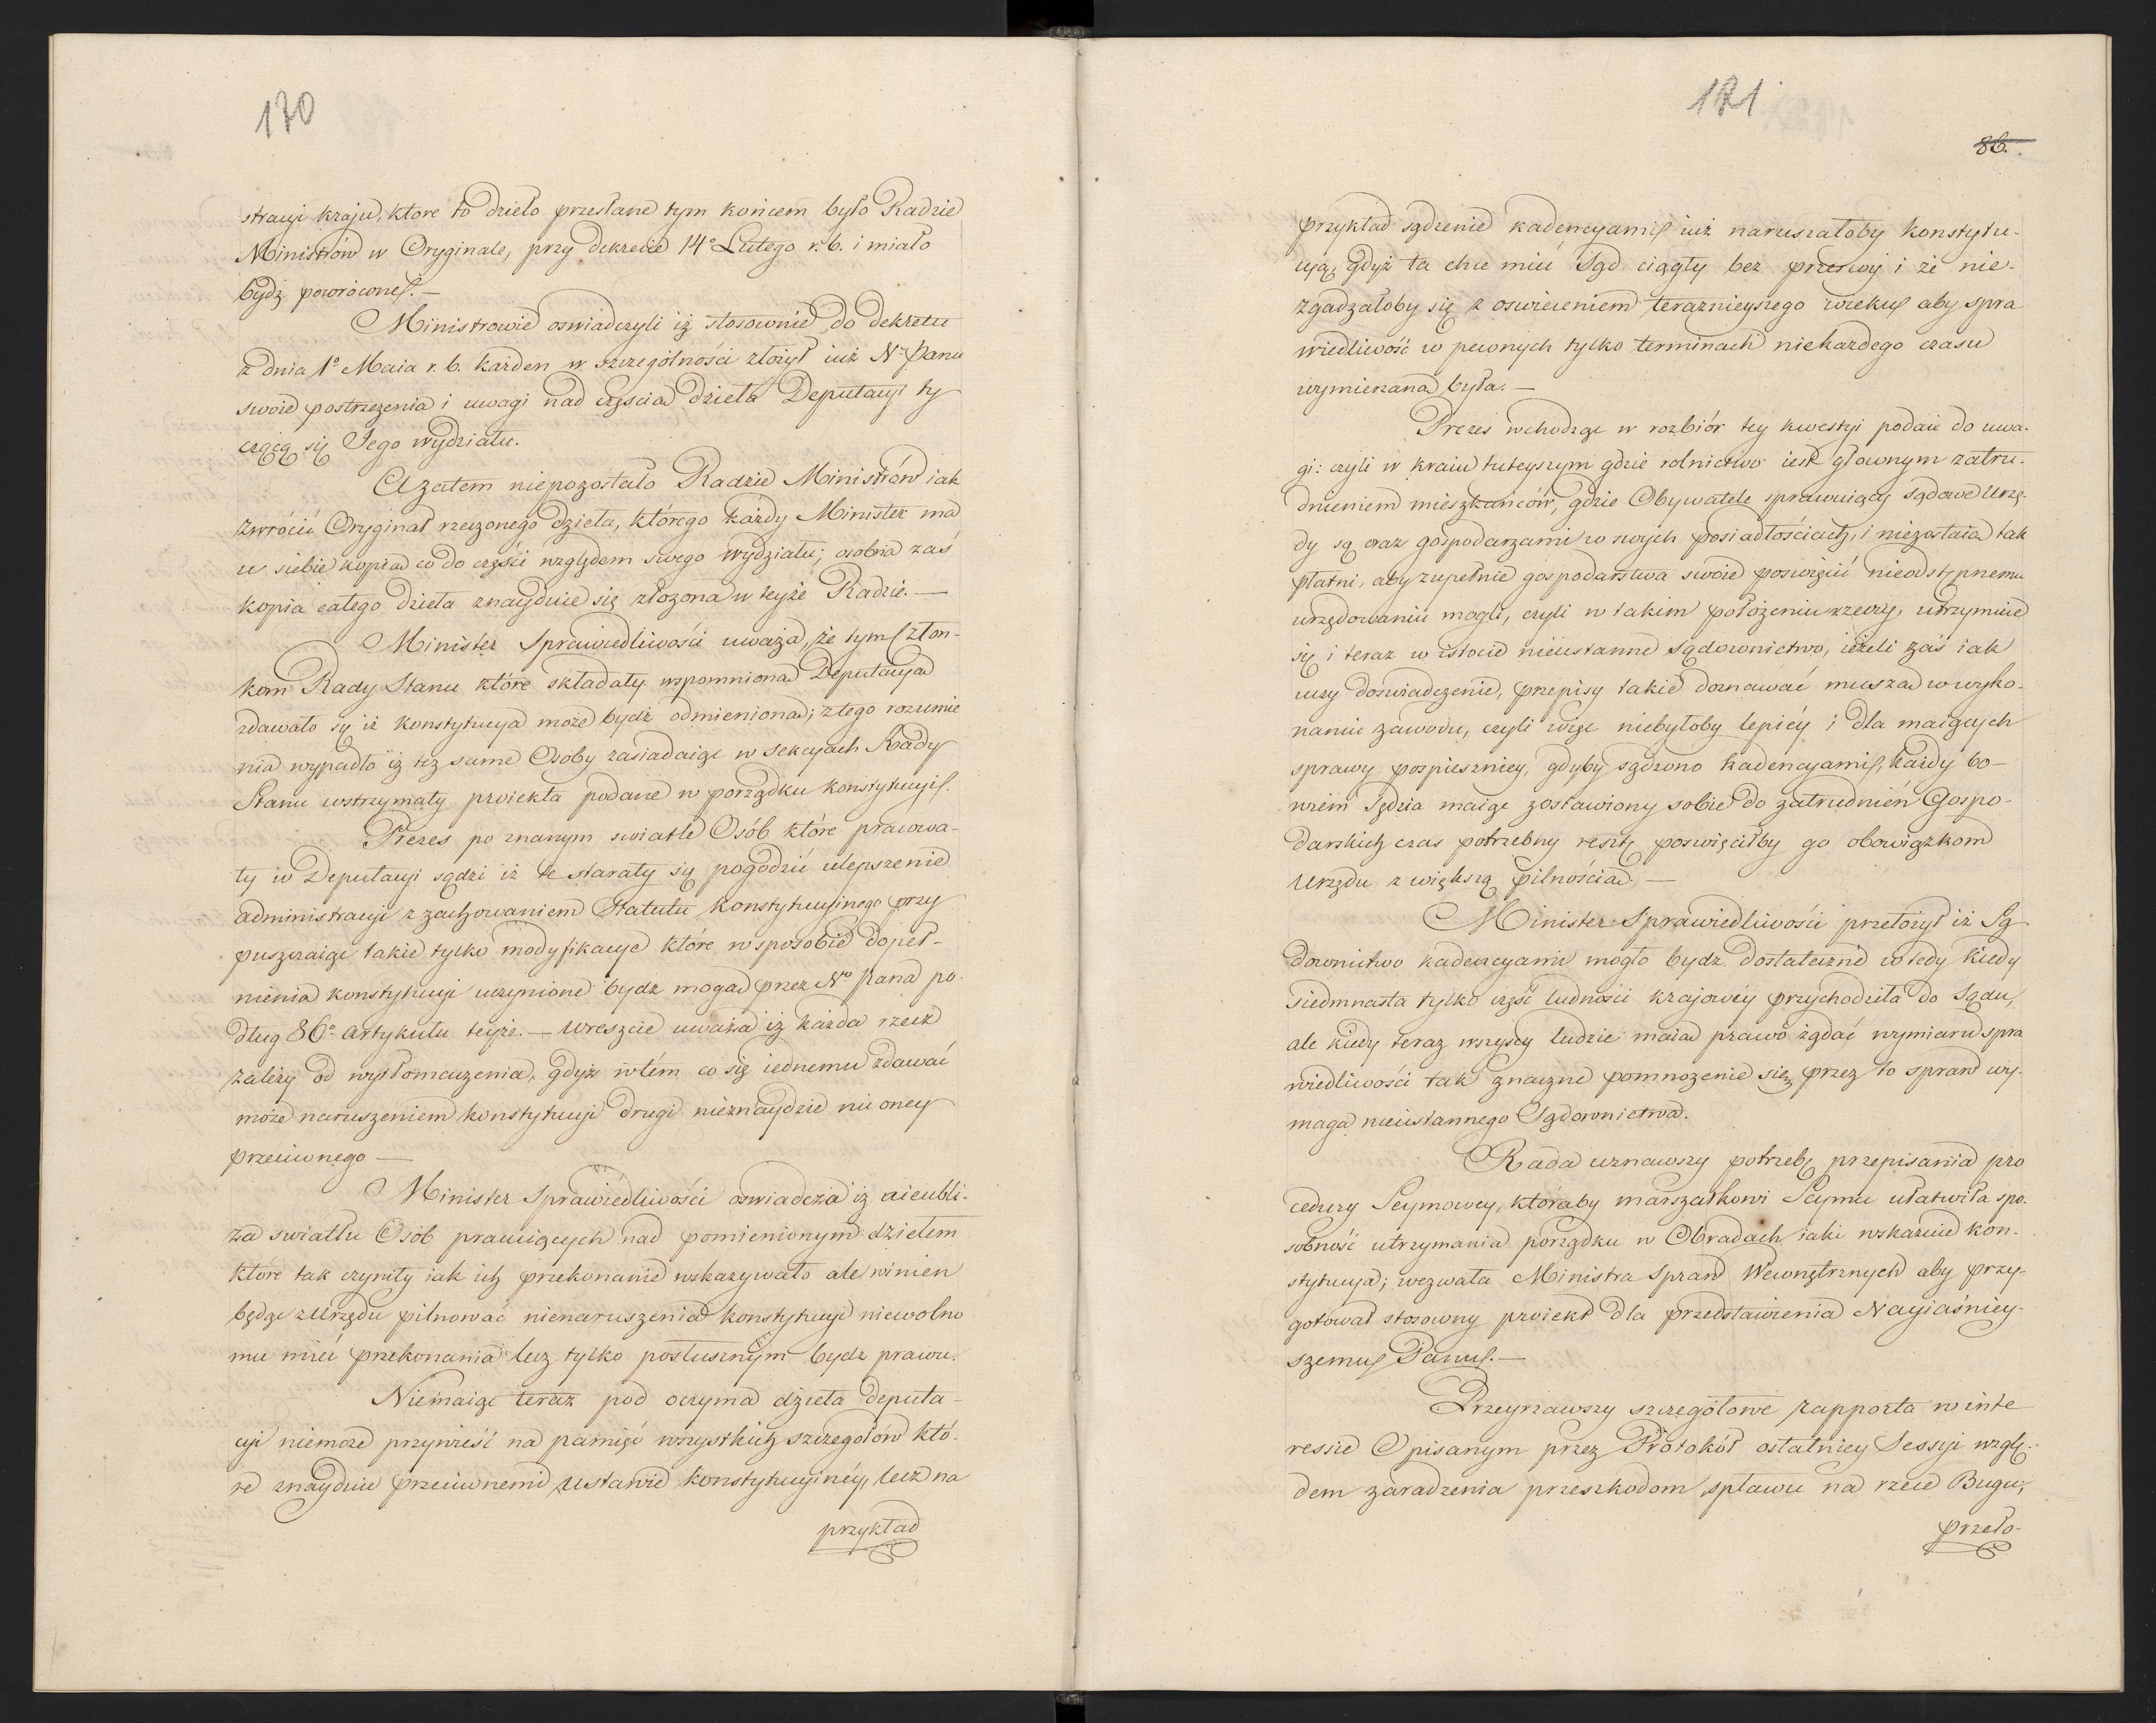 170
stracyi kraju, ktore to dzieło przesłane tym końcem było Radzie
Ministrów w Oryginale, przy dekrecie 14° Lutego r. b. i miało
bydź powrócone. —
Ministrowie oswiadczyli iż stosownie do dekretu
z dnia 1° Maia r. b. każden w szczególności złożył iuż Nu Panu
swoie postrzeżenia i uwagi nad częścia dzieła Deputacyi ty
czącą się Jego wydziału.
A zatem niepozostało Radzie Ministrów iak
zwrócić Oryginał rzeczonego dzieła, którego każdy Minister ma
u siebie kopia co do części względem swego wydziału; osobna zaś
kopia całego dzieła znayduie się złożona w teyże Radzie. —
Minister Sprawiedliwości uważa, że tym Człon-
kom Rady Stanu które składały wspomniona Deputacya
zdawało się iż konstytucya może bydź odmieniona; z tego rozumie
nia wypadło iż też same Osoby zasiadaiąc w sekcyach Rady
Stanu wstrzymały proiekta podane w porządku konstytucyi.
Prezes po znanym swiatle Osób które pracowa-
ły w Deputacyi sądzi iż te starały się pogodzić ulepszenie
administracyi z zachowaniem Statutu konstytucyinego przy
puszczaiąc takie tylko modyfikacye które w sposobie dopeł-
nienia konstytucyi uczynione bydź mogą przez No Pana po
dług 86° artykułu teyże. — Wreszcie uważa iż każda rzecz
zależy od wytłomaczenia, gdyż w tém co się iednemu zdawać
może naruszeniem konstytucyi drugi nieznaydzie nic oney
przeciwnego —
Minister Sprawiedliwości oswiadcza iż nieubli-
ża swiatłu Osób pracuiących nad pomienionym dziełem
które tak czyniły iak ich przekonanie wskazywało ale winien
będąc z Urzędu pilnować nienaruszenia konstytucyi niewolno
mu mieć przekonania lecz tylko posłusznym bydź prawu.
Niemaiąc teraz pod oczyma dzieła deputa-
cyi niemoże przynieść na pamięć wszystkich szczegółów któ-
re znayduie przeciwnemi ustawie konstytucyinéy, lecz na
przykład
171
86.
przykład sądzenie kadencyami iuż naruszałoby konstytu-
cyą, gdyż ta chce mieć Sąd ciągły bez przerwy i że nie-
zgadzałoby się z oswieceniem teraznieyszego wieku aby spra
wiedliwość w pewnych tylko terminach niekażdego czasu
wymierzana była. —
Prezes wchodząc w rozbiór tey kwestyi podaie do uwa-
gi: czyli w kraiu tuteyszym gdzie rolnictwo iest głownym zatru-
dnieniem mieszkańców, gdzie Obywatele sprawuiący sądowe Urzę-
dy są oraz gospodarzami w swych posiadłościach, i niezostaia tak
płatni, aby zupełnie gospodarstwa swoie poswięcić nieodstępnemu
urzędowaniu mogli, czyli w takim położeniu rzeczy, utrzymuie
się i teraz w istocie nieustanne sądownictwo, ieżeli zaś iak
uczy doswiadczenie, przepisy takie doznawać musza w wyko-
naniu zawodu, czyli więc niebyłoby lepiéy i dla maiących
sprawy pospieszniey, gdyby sądzono kadencyami, każdy bo-
wiem Sędzia maiąc zostawiony sobie do zatrudnień Gospo-
darskich czas potrzebny resztę poswięciłby go obowiązkom
Urzędu z większą pilnościa. —
Minister Sprawiedliwości przełożył iż Są
downictwo kadencyami mogło bydź dostateczne wtedy kiedy
siedmnasta tylko część ludności krajowéy przychodziła do Sądu,
ale kiedy teraz wszyscy ludzie maia prawo żądać wymiaru spra
wiedliwości tak znaczne pomnożenie się przez to spraw wy-
maga nieustannego Sądownictwa.
Rada uznawszy potrzebę przepisania pro
cedury Seymowey, któraby marszałkowi Seymu ułatwiła spo-
sobność utrzymania porządku w Obradach iaki wskazuie kon-
stytucya; wezwała Ministra Spraw Wewnętrznych aby przy-
gotował stosowny proiekt dla przedstawienia Nayiaśniey-
szemu Panu. —
Przeyrzawszy szczegółowe rapporta w inte
ressie Opisanym przez Protokół ostatniey Sessyi wzglę-
dem zaradzenia przeszkodom spławu na rzece Bugu,
przeło-